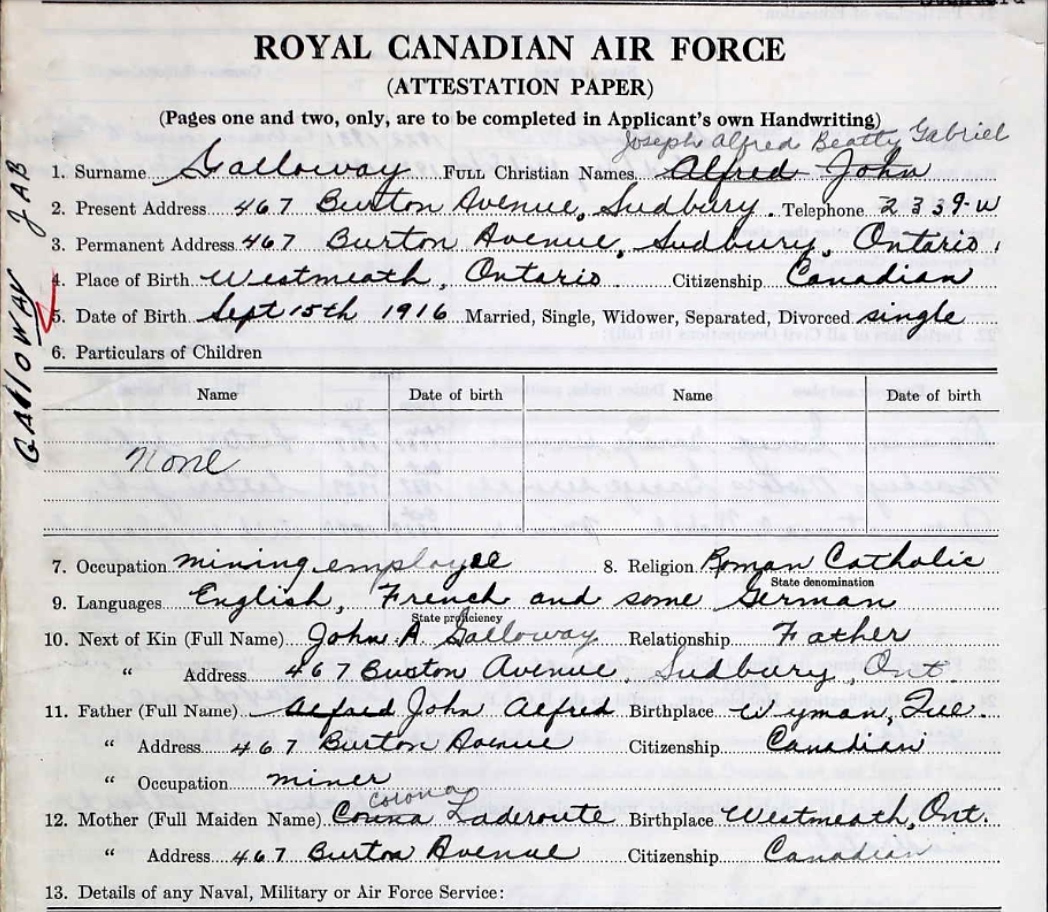 ROYAL CANADIAN AIR FORCE
(ATTESTATION PAPER)
(Pages one and two, only, are to be completed in Applicant's own Handwriting)
Joseph Alfred Beatty Gabriel
1. Surname Galloway FULL Christian Names Alfred John
2. Present Address 467 Burton Avenue, Sudbury. Telephone 2339-W
3. Permanent Address 467 Burton Avenue, Sudbury, Ontario,
4. Place of Birth Westmeath, Ontario. Citizenship Canadian
5. Date of Birth Sept 15th 1916 Married, Single, Widower, Separated, Divorced single
6. Particulars of Children
Name Date of birth Name Date of birth
None
7. Occupation mining employee 8. Religion Roman Catholic
State denomination
9. Languages English, French and some German
State proficiency
10. Next of Kin (Full Name) John A. Galloway Relationship Father
" Address 467 Burton Avenue, Sudbury, Ont
11. Father (Full Name) John Alfred Birthplace Wyman, Que.
" Address 467 Burton Avenue Citizenship Canadian
" Occupation miner
corona
12. Mother (Full Maiden Name) Laderoute Birthplace Westmeath, Ont.
" Address 467 Burton Avenue Citizenship Canadian
13. Details of any Naval, Military or Air Force Service:
GALLOWAY JAB